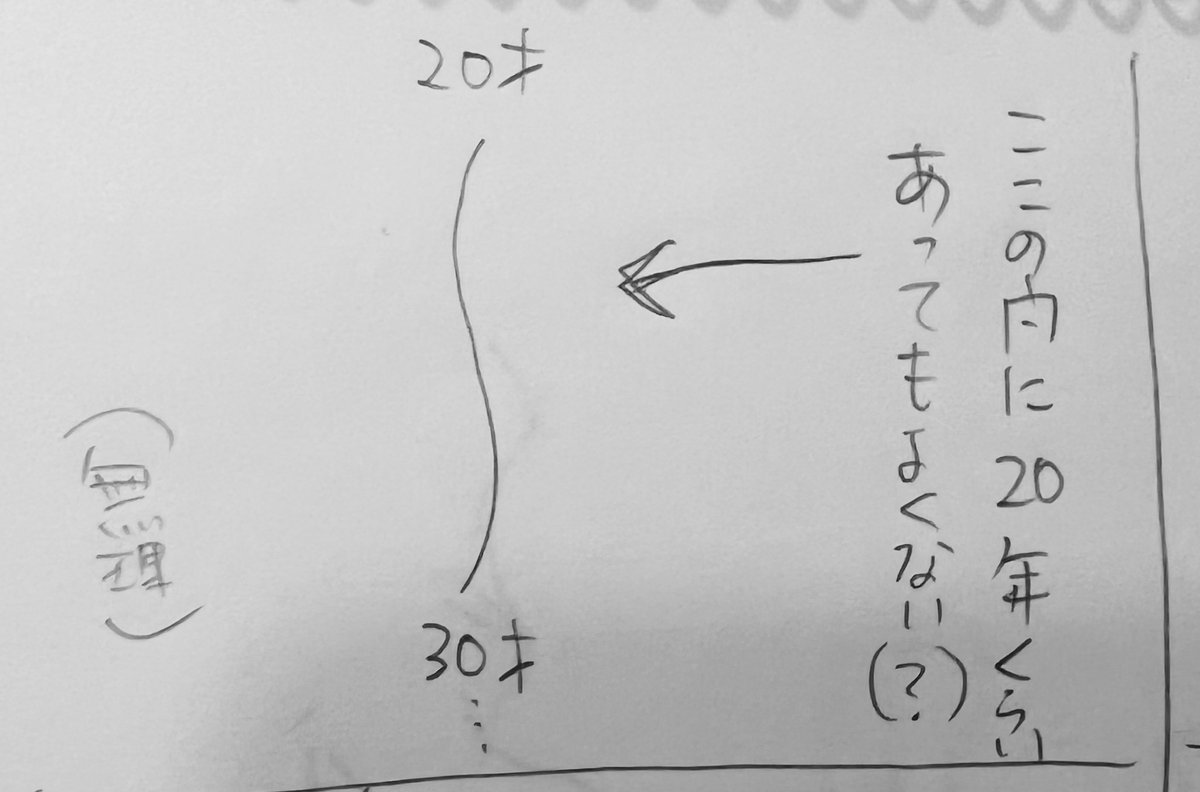 ここの内に20年くらい
あってもよくない(?)
20才
30才
⋮